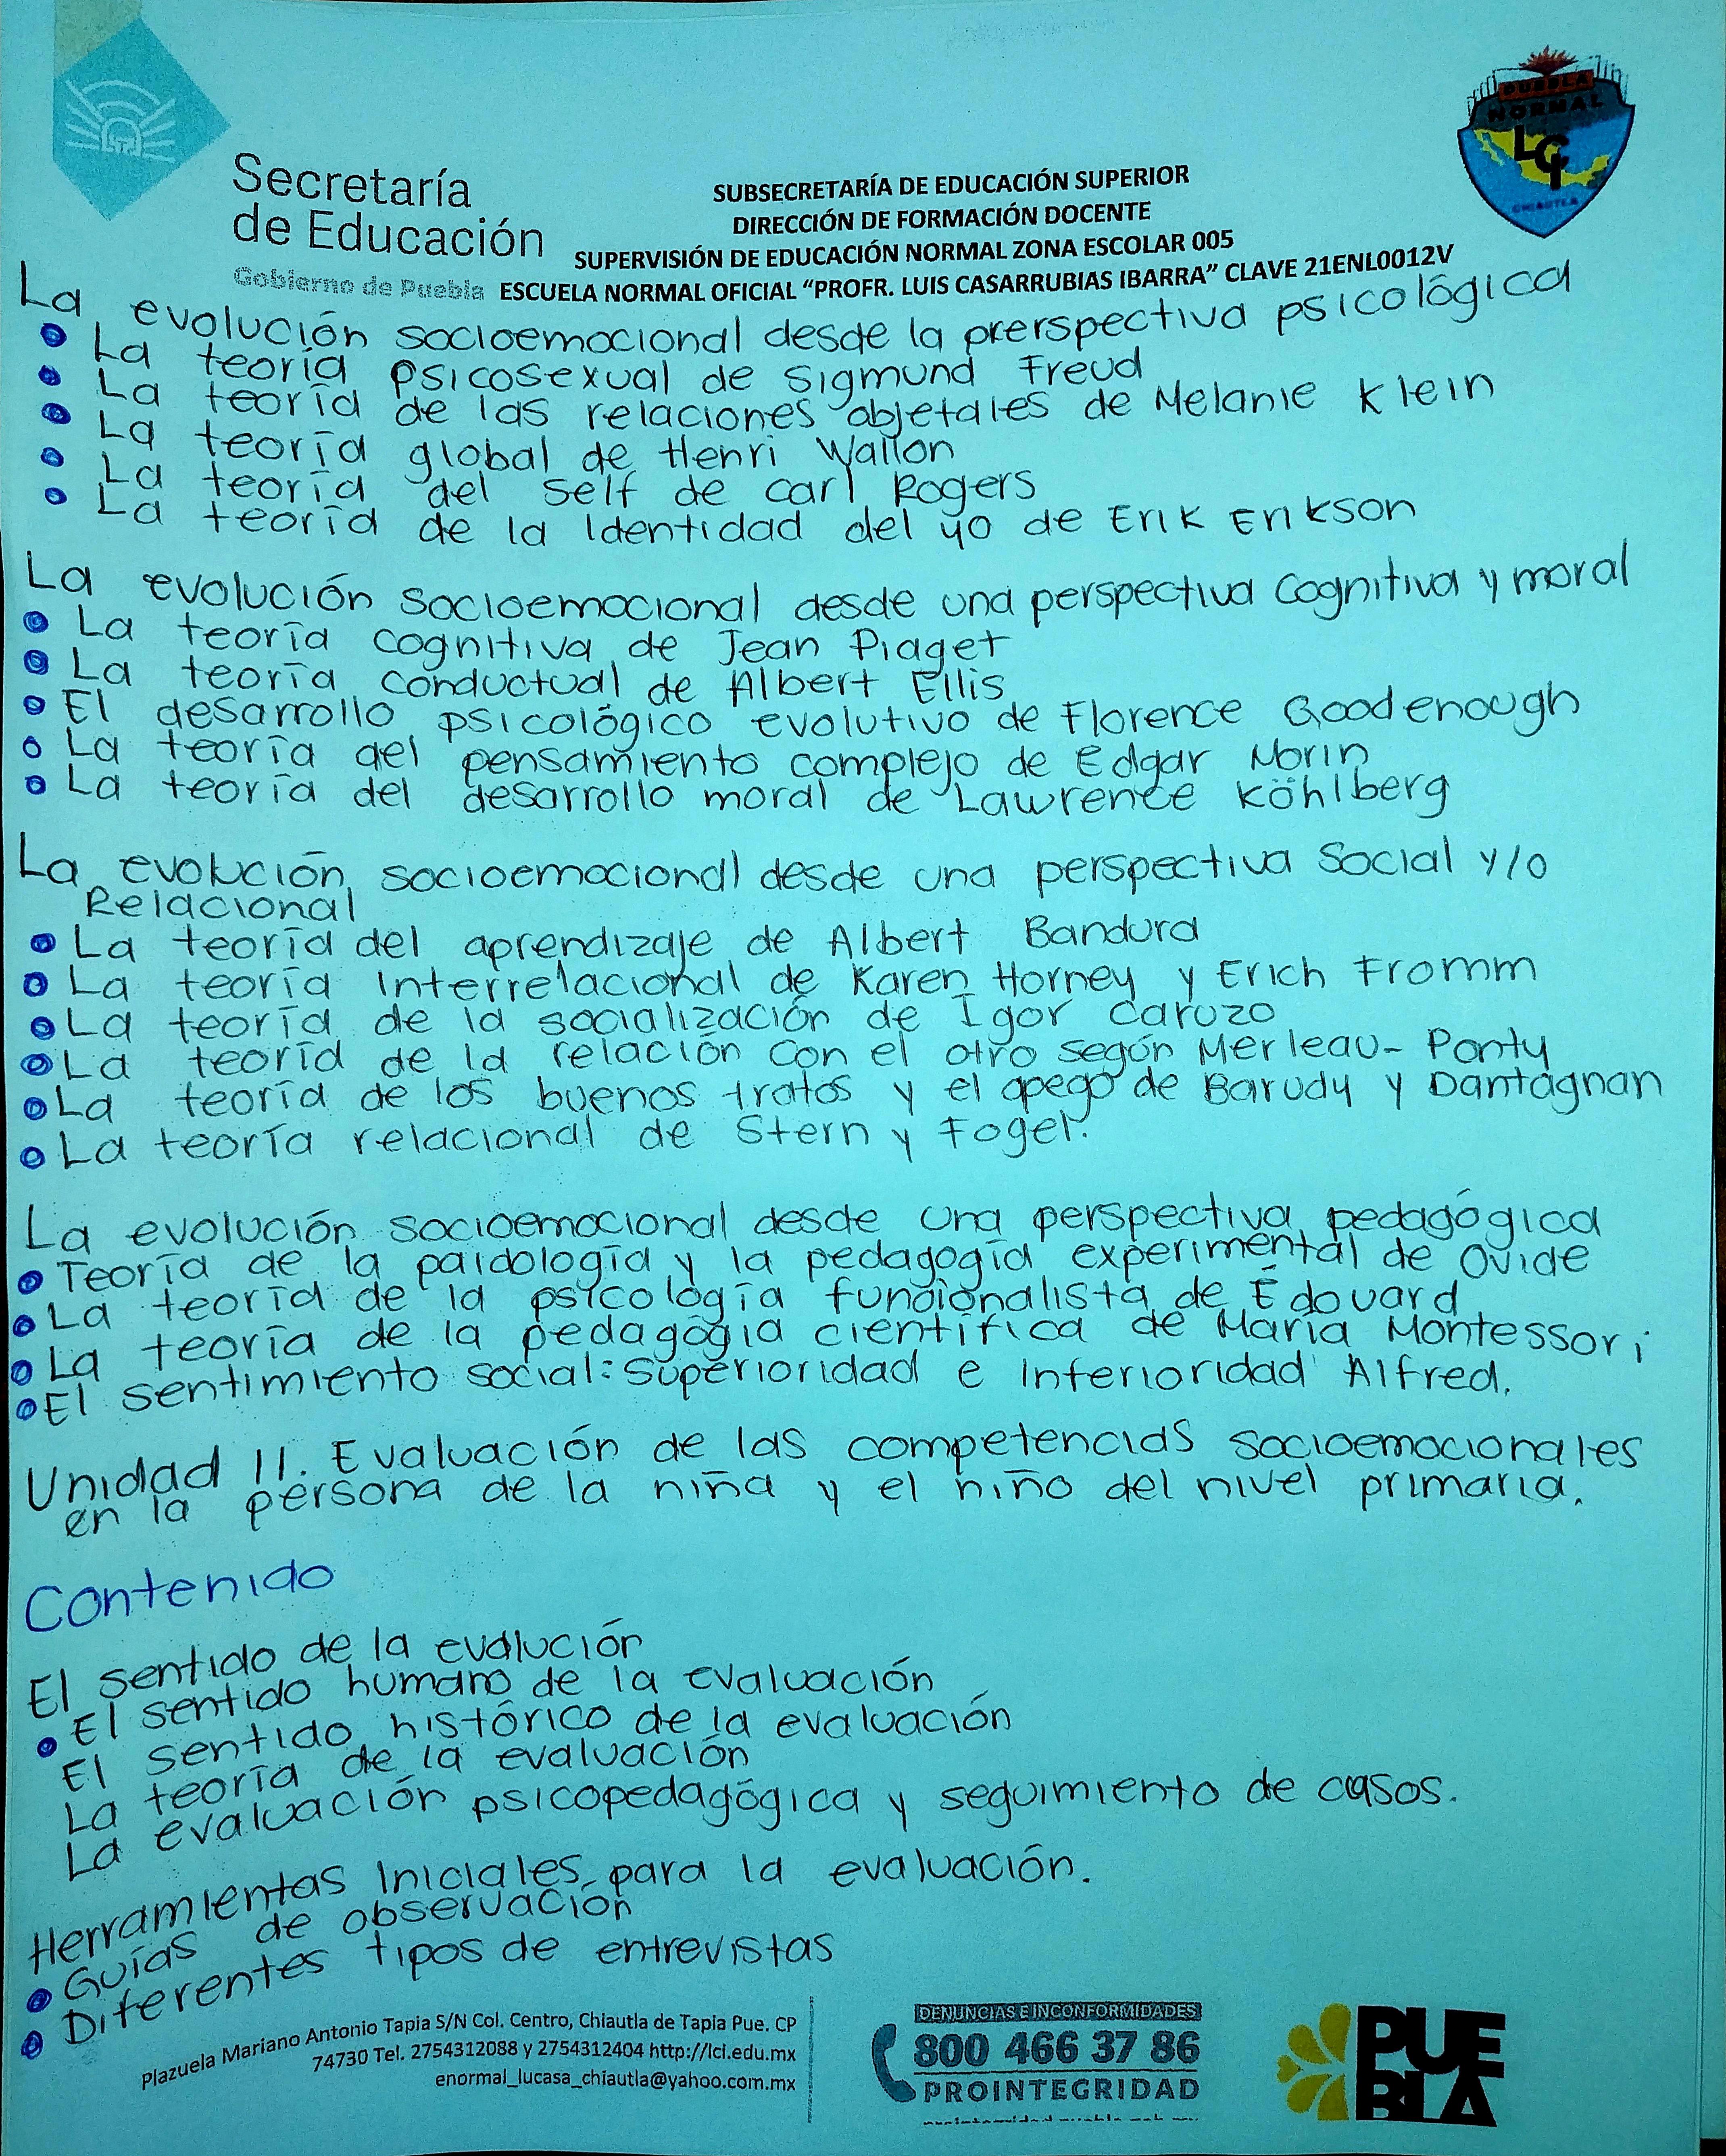 PUEBLA
NORMAL
LCI
CHIAUTLA
Secretaría
de Educación
Gobierno de Puebla
SUBSECRETARÍA DE EDUCACIÓN SUPERIOR
DIRECCIÓN DE FORMACIÓN DOCENTE
SUPERVISIÓN DE EDUCACIÓN NORMAL ZONA ESCOLAR 005
ESCUELA NORMAL OFICIAL “PROFR. LUIS CASARRUBIAS IBARRA” CLAVE 21ENL0012V
La evolución socioemocional desde la prerspectiva psicológica
• La teoría psicosexual de Sigmund Freud
• La teoría de las relaciones objetales de Melanie Klein
• La teoría global de Henri Wallon
• La teoría del self de Carl Rogers
• La teoría de la Identidad del yo de Erik Erikson
La evolución socioemocional desde una perspectiva Cognitiva y moral
• La teoría cognitiva de Jean Piaget
• La teoría conductual de Albert Ellis
• El desarrollo psicológico evolutivo de Florence Goodenough
• La teoría del pensamiento complejo de Edgar Morin
• La teoría del desarrollo moral de Lawrence Köhlberg
La evolución socioemocional desde una perspectiva Social y/o
Relacional
• La teoría del aprendizaje de Albert Bandura
• La teoría Interrelacional de Karen Horney y Erich Fromm
• La teoría de la socialización de Igor Caruzo
• La teoría de la relación con el otro según Merleau-Ponty
• La teoría de los buenos tratos y el apego de Barudy y Dantagnan
• La teoría relacional de Stern y Fogel.
La evolución socioemocional desde una perspectiva pedagógica
• Teoría de la paidología y la pedagogía experimental de Ovide
• La teoría de la psicología funcionalista de Édouard
• La teoría de la pedagogía científica de María Montessori
• El sentimiento social: Superioridad e Inferioridad Alfred.
Unidad II. Evaluación de las competencias socioemocionales
en la persona de la niña y el niño del nivel primaria.
Contenido
El sentido de la evalución
• El sentido humano de la evaluación
El sentido histórico de la evaluación
La teoría de la evaluación
La evaluación psicopedagógica y seguimiento de casos.
Herramientas Iniciales para la evaluación.
• Guías de observación
• Diferentes tipos de entrevistas
Plazuela Mariano Antonio Tapia S/N Col. Centro, Chiautla de Tapia Pue. CP
74730 Tel. 2754312088 y 2754312404 http://lci.edu.mx
enormal_lucasa_chiautla@yahoo.com.mx
DENUNCIAS E INCONFORMIDADES
800 466 37 86
PROINTEGRIDAD
PUE
BLA